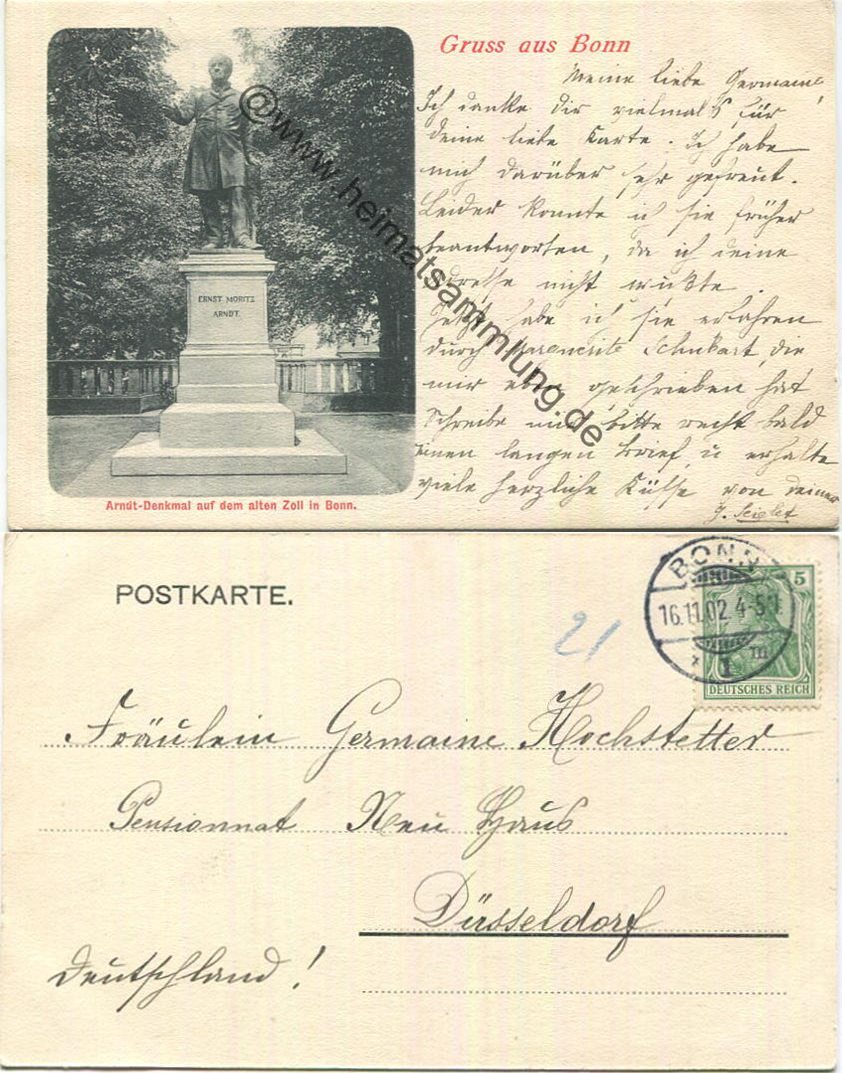 Gruss aus Bonn
Meine liebe Germaine,
Ich danke dir vielmals für
deine liebe Karte. Ich habe
mich darüber sehr gefreut.
Leider konnte ich sie früher
beantworten, da ich deine
Adresse nicht wußte.
Jetzt habe ich sie erfahren
durch Marguerite Schukart, die
mir geschrieben hat
Schreibe mir bitte recht bald
einen langen Brief u erhalte
viele herzliche Küsse von deiner
ERNST MORITZ
ARNDT.
Arndt-Denkmal auf dem alten Zoll in Bonn.
@www.heimatsammlung.de
POSTKARTE.
21
BONN
16.11.02. 4-5N
* 1 m
5
DEUTSCHES REICH
Fräulein Germaine Hochstetter
Pensionnat Neu Haus
Düsseldorf
Deutschland!